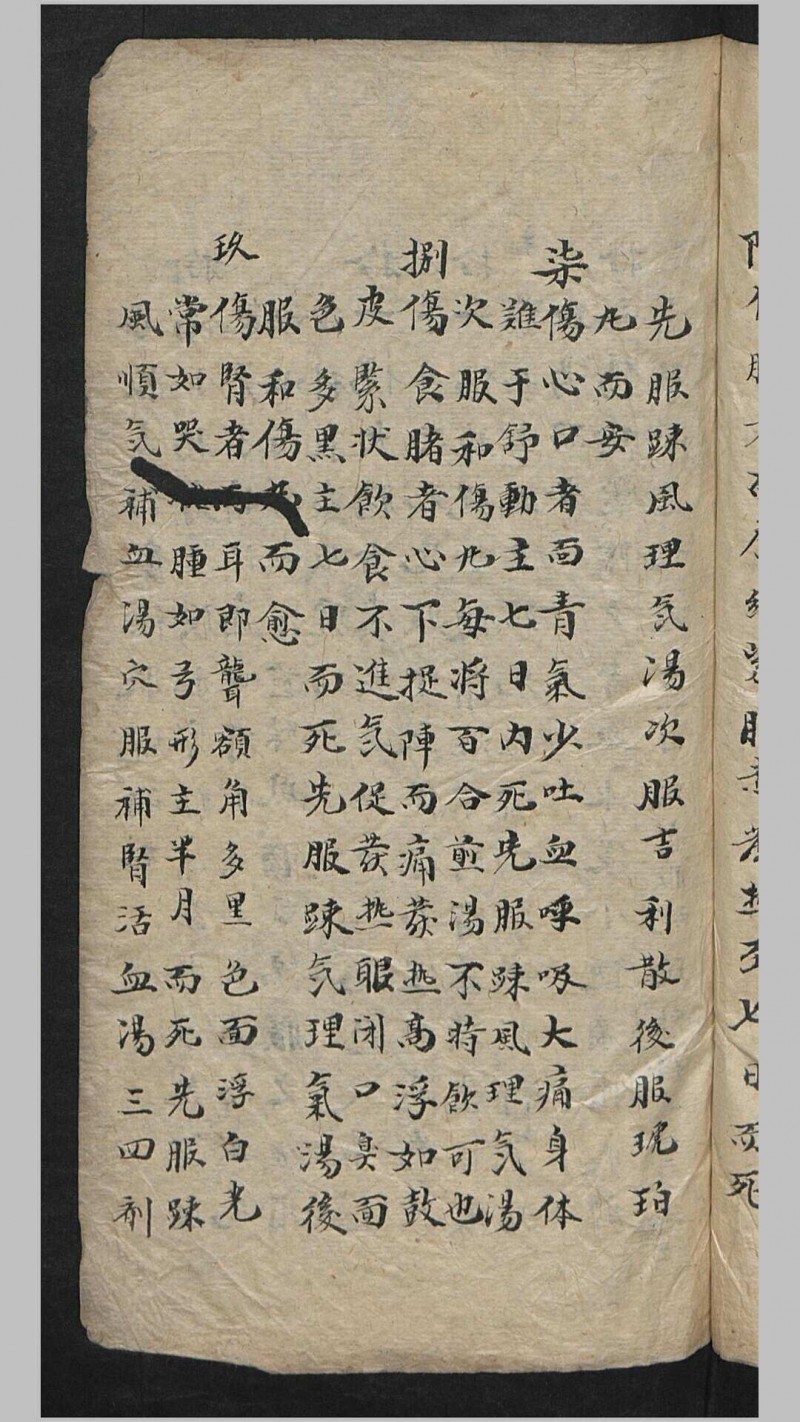 先服踈風理気湯次服吉利散後服琥珀
九而安
柒
傷心口者面青氣少吐血呼吸大痛身体
難于舒動主七日内死先服踈風理気湯
次服和傷九每將百合煎湯不時飲可也
捌
傷食賭者心下捉陣而痛發热高浮如鼓
皮緊状飲食不進気促發热眼闭口臭面
色多黑主七日而死先服踈気理氣湯後
服和傷九而愈
玖
傷腎者両耳即聾額角多里色面浮白光
常如哭腫如弓形主半月而死先服踈
風順気補血湯穴服補腎活血湯三四剂
日而死